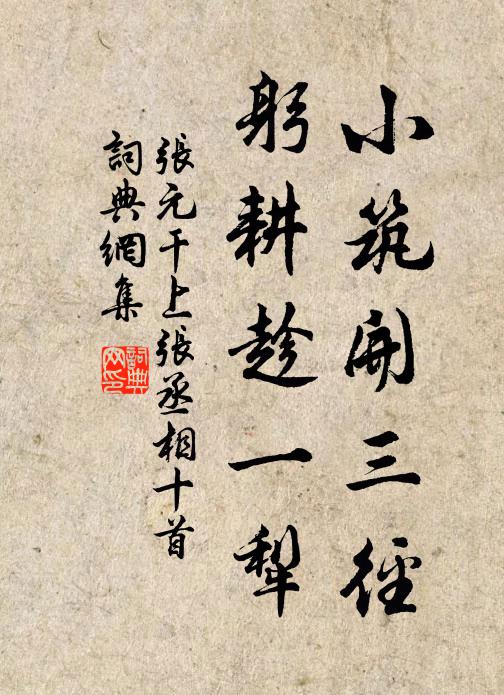 小筑開三徑
躬耕趁一犂
張元干上張丞相十首
詞典網集
詞典網印